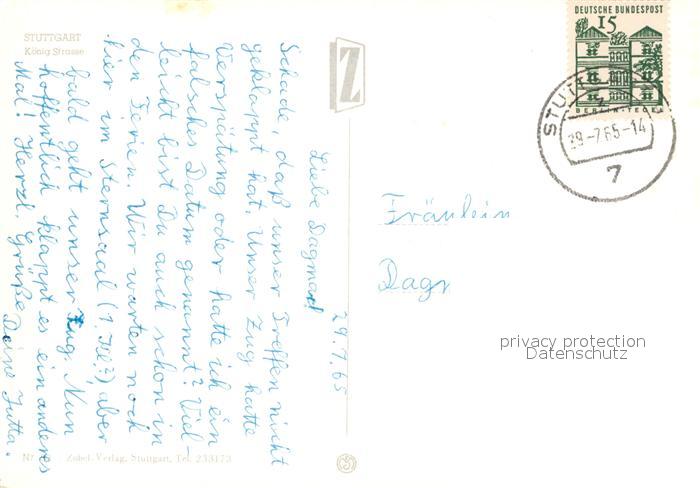 STUTTGART
König Strasse
29.7.65
Liebe Dagmar!
Schade, daß unser Treffen nicht
geklappt hat. Unser Zug hatte
Verspätung oder hatte ich ein
falsches Datum genannt? Viel-
leicht bist Du auch schon in
den Ferien. Wir warten noch
hier im Sternsaal (1. Kl.?), aber
bald geht unser Zug. Nun
hoffentlich klappt es ein anderes
Mal! Herzl. Grüße
Deine Jutta.
Zobel-Verlag, Stuttgart, Tel. 233173
Z
DEUTSCHE BUNDESPOST
15
BERLIN-TEGEL
29-7.65-14
7
Fräulein
Dagr
privacy protection
Datenschutz